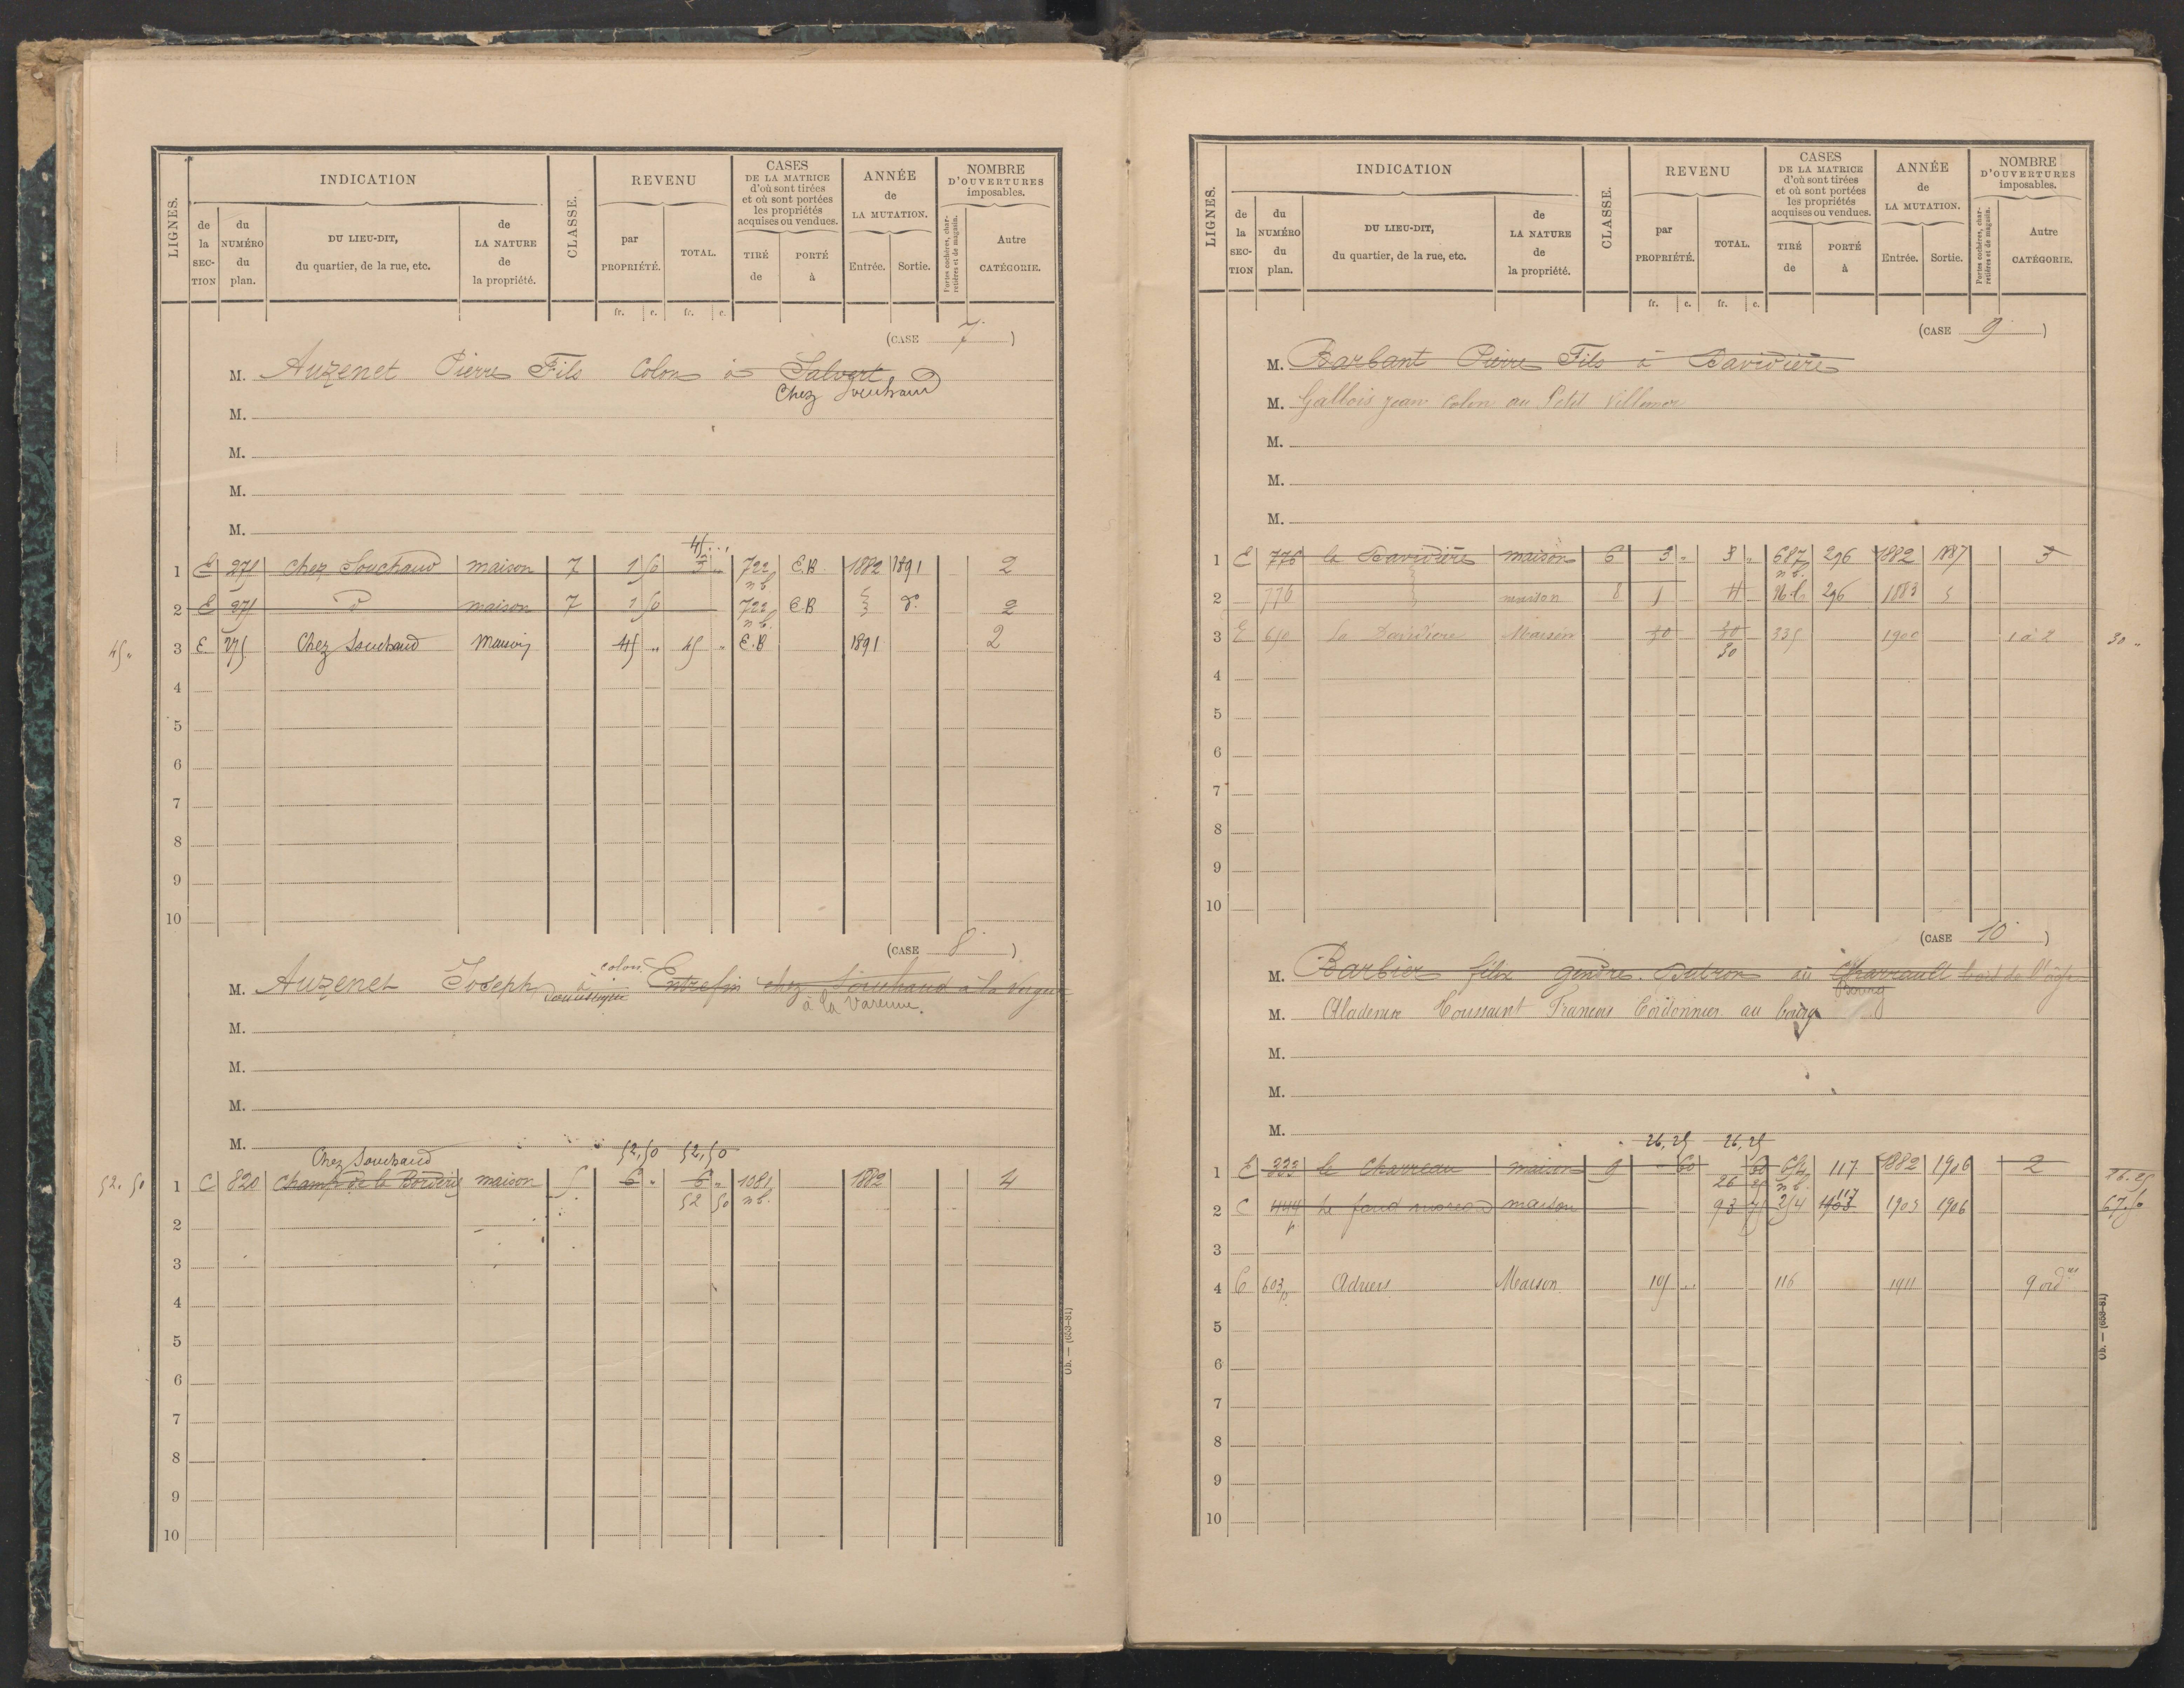 LIGNES.
INDICATION
CLASSE.
REVENU
CASES
DE LA MATRICE
d'où sont tirées
et où sont portées
les propriétés
acquises ou vendues.
ANNÉE
de
LA MUTATION.
NOMBRE
D'OUVERTURES
imposables.
de la SECTION
du NUMÉRO du plan.
DU LIEU-DIT,
du quartier, de la rue, etc.
de LA NATURE de la propriété.
par PROPRIÉTÉ.
TOTAL.
TIRÉ de
PORTÉ à
Entrée.
Sortie.
Portes cochères, charretières et de magasin.
Autre CATÉGORIE.
fr. c. fr. c.
(CASE 7 )
M. Auzenet Pierre Fils Colon à Salvert
Chez Souchaud
M.
M.
M.
M.
45
1 E 271 Chez Souchaud maison 7 1 50 3 " 722 E.B. 1882 1891 2
n b.
2 E 271 d° maison 7 1 50 722 E.B d°. 2
n b.
45 " 3 E. 275 Chez Souchaud Maison 45 " 45 " E.B 1891 2
4
5
6
7
8
9
10
(CASE 8 )
colon
M. Auzenet Joseph à Entrefin chez Souchaud à la Vergne
à la Varenne.
M.
M.
M.
M.
Chez Souchaud 52,50 52,50
52.50 1 C 820 Champ de la Borderie maison 5 6 " 6 " 1081 1882 4
52 50 n b.
2
3
4
5
6
7
8
9
10
Ob. — (653-81)
LIGNES.
INDICATION
CLASSE.
REVENU
CASES
DE LA MATRICE
d'où sont tirées
et où sont portées
les propriétés
acquises ou vendues.
ANNÉE
de
LA MUTATION.
NOMBRE
D'OUVERTURES
imposables.
de la SECTION
du NUMÉRO du plan.
DU LIEU-DIT,
du quartier, de la rue, etc.
de LA NATURE de la propriété.
par PROPRIÉTÉ.
TOTAL.
TIRÉ de
PORTÉ à
Entrée.
Sortie.
Portes cochères, charretières et de magasin.
Autre CATÉGORIE.
fr. c. fr. c.
(CASE 9 )
M. Barbant Pierre Fils à Davidière
M. Gallois Jean Colon au Petit
M.
M.
M.
1 E 776 la Davidière maison 6 3 " 3 " 687 296 1882 1887 3
n b.
2 776 maison 8 1 4 N.b 296 1883
3 E 650 La Davidière Maison 30 30 335 1900 1 à 2 30 "
30
4
5
6
7
8
9
10
(CASE 10 )
M. Barbier félix gendre Dutron au Charrault
Bourg
M. Toussaint François Cordonnier au bourg
M.
M.
M.
26,25 26,25
1 E 333 le Charreau maison 8 " 60 60 64 117 1882 1906 2 26.25
26 25 n b.
2 C 444 maison 93 75 254 117 1905 1906 67.50
p
3
4 C 603p Maison 105 " 116 1911 9 ord res
5
6
7
8
9
10
Ob. — (653-81)